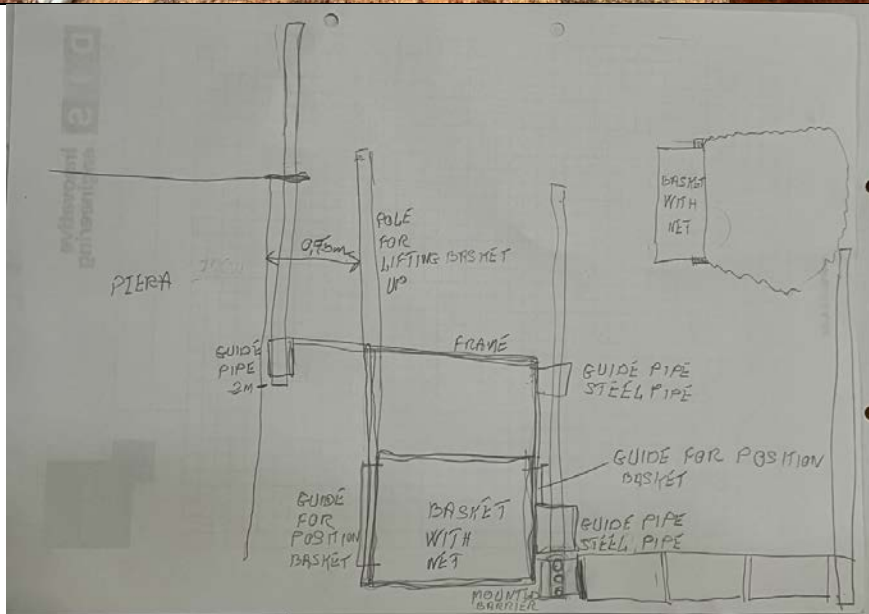 PIERA
0,75m
POLE
FOR
LIFTING BASKET
UP
BASKET
WITH
NET
GUIDE
PIPE
-2M-
FRAME
GUIDE PIPE
STEEL PIPE
GUIDE FOR POSITION
BASKET
GUIDE
FOR
POSITION
BASKET
BASKET
WITH
NET
GUIDE PIPE
STEEL PIPE
MOUNTED
BARRIER
D S
innovative
engineering